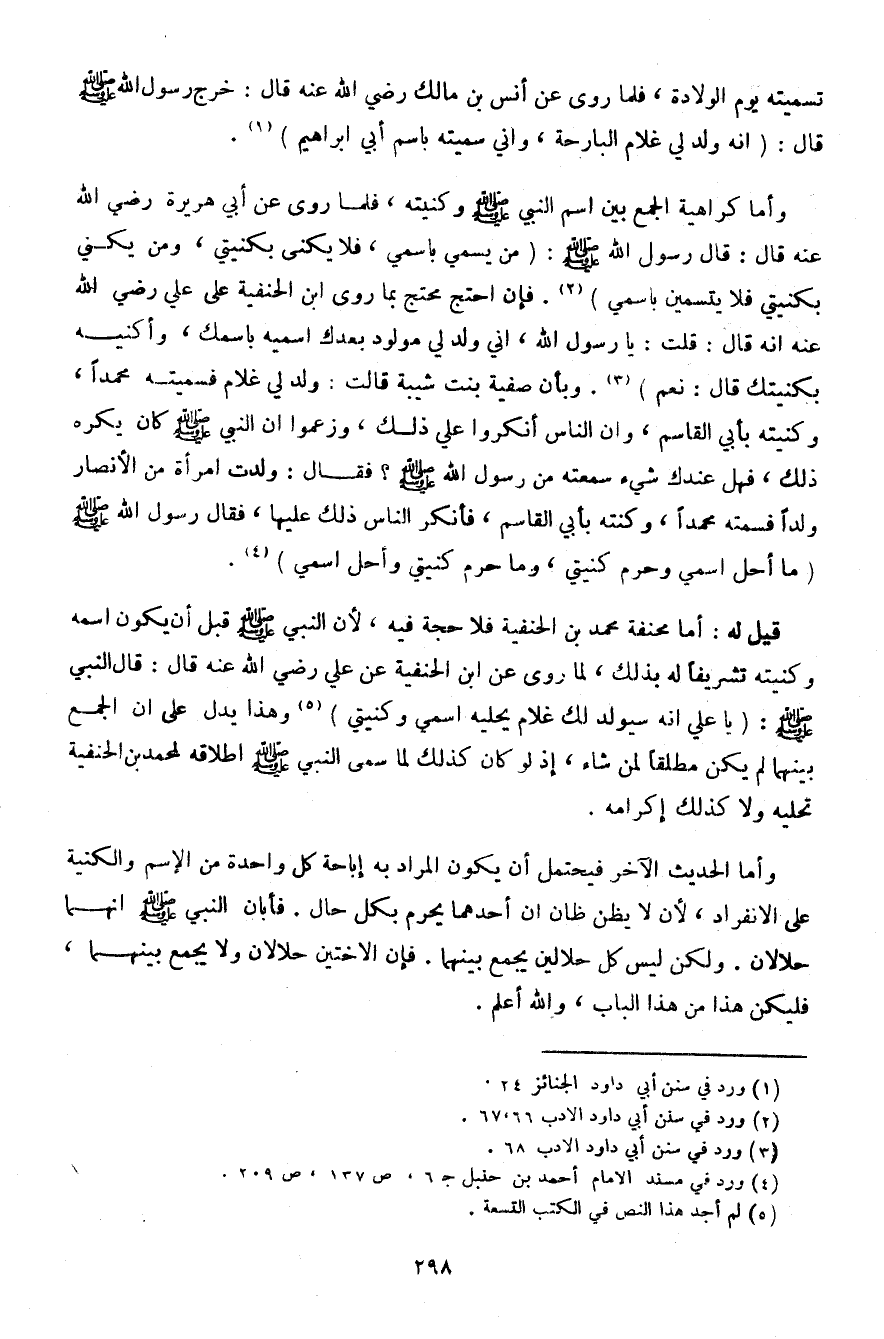 تسميته يوم الولادة ، فلما روى عن أنس بن مالك رضي الله عنه قال : خرج رسول الله ﷺ
قال : ( انه ولد لي غلام البارحة ، واني سميته باسم أبي ابراهيم ) (١) .
وأما كراهية الجمع بين اسم النبي ﷺ وكنيته ، فلمــا روى عن أبي هريرة رضي الله
عنه قال : قال رسول الله ﷺ : ( من يسمي باسمي ، فلا يكنى بكنيتي ، ومن يكـني
بكنيتي فلا يتسمين باسمي ) (٢) . فإن احتج محتج بما روى ابن الحنفية على علي رضي الله
عنه انه قال : قلت : يا رسول الله ، اني ولد لي مولود بعدك اسميه باسمك ، وأكنيــه
بكنيتك قال : نعم ) (٣) . وبأن صفية بنت شيبة قالت : ولد لي غلام فسميتــه محمداً ،
وكنيته بأبي القاسم ، وان الناس أنكروا علي ذلــك ، وزعموا ان النبي ﷺ كان يكره
ذلك ، فهل عندك شيء سمعته من رسول الله ﷺ ؟ فقــال : ولدت امرأة من الأنصار
ولداً فسمته محمداً ، وكنته بأبي القاسم ، فأنكر الناس ذلك عليها ، فقال رسول الله ﷺ
( ما أحل اسمي وحرم كنيتي ، وما حرم كنيتي وأحل اسمي ) (٤) .
قيل له : أما محنفة محمد بن الحنفية فلا حجة فيه ، لأن النبي ﷺ قبل أن يكون اسمه
وكنيته تشريفاً له بذلك ، لما روى عن ابن الحنفية عن علي رضي الله عنه قال : قال النبي
ﷺ : ( يا علي انه سيولد لك غلام يحليه اسمي وكنيتي ) (٥) وهذا يدل على ان الجمــع
بينهما لم يكن مطلقاً لمن شاء ، إذ لو كان كذلك لما سمى النبي ﷺ اطلاقه لمحمد بن الحنفية
تحليه ولا كذلك إكرامه .
وأما الحديث الآخر فيحتمل أن يكون المراد به إباحة كل واحدة من الإسم والكنية
على الانفراد ، لأن لا يظن ظان ان أحدهما يحرم بكل حال . فأبان النبي ﷺ انهــما
حلالان . ولكن ليس كل حلالين يجمع بينهما . فإن الاختين حلالان ولا يجمع بينهــما ،
فليكن هذا من هذا الباب ، والله أعلم .
(١) ورد في سنن أبي داود الجنائز ٢٤ .
(٢) ورد في سنن أبي داود الادب ٦٦،٦٧ .
(٣) ورد في سنن أبي داود الادب ٦٨ .
(٤) ورد في مسند الامام أحمد بن حنبل جـ ٦ ، ص ١٣٧ ، ص ٢٠٩ .
(٥) لم أجد هذا النص في الكتب التسعة .
٢٩٨